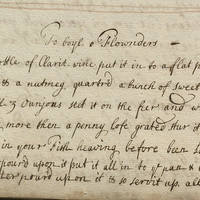 To boyl o Flownders
ottle of Clarit wine put it in to a flat p
& a nutmeg quartrd a bunch of sweet
& Ounyons set it on the fier and w
more then a penny lofe grated thur d
in your Fish heaving before bein
pourd upon it put it all in to yt pan &
ter pourd upon it & so servit up. all